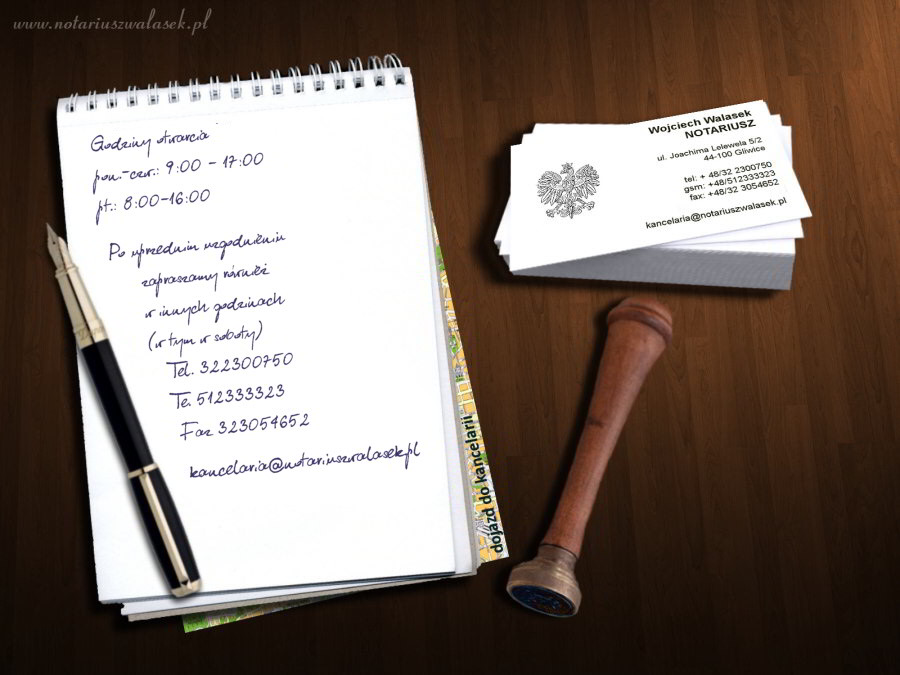 www.notariuszwalasek.pl
Godziny otwarcia
pon.-czw.: 9:00 - 17:00
pt.: 8:00-16:00
Po uprzednim uzgodnieniu
zapraszamy również
w innych godzinach
(w tym w soboty)
Tel. 322300750
Te. 512333323
Fax 323054652
kancelaria@notariuszwalasek.pl
dojazd do kancelarii
Wojciech Walasek
NOTARIUSZ
ul. Joachima Lelewela 5/2
44-100 Gliwice
tel: + 48/32 2300750
gsm: +48/512333323
fax: +48/32 3054652
kancelaria@notariuszwalasek.pl